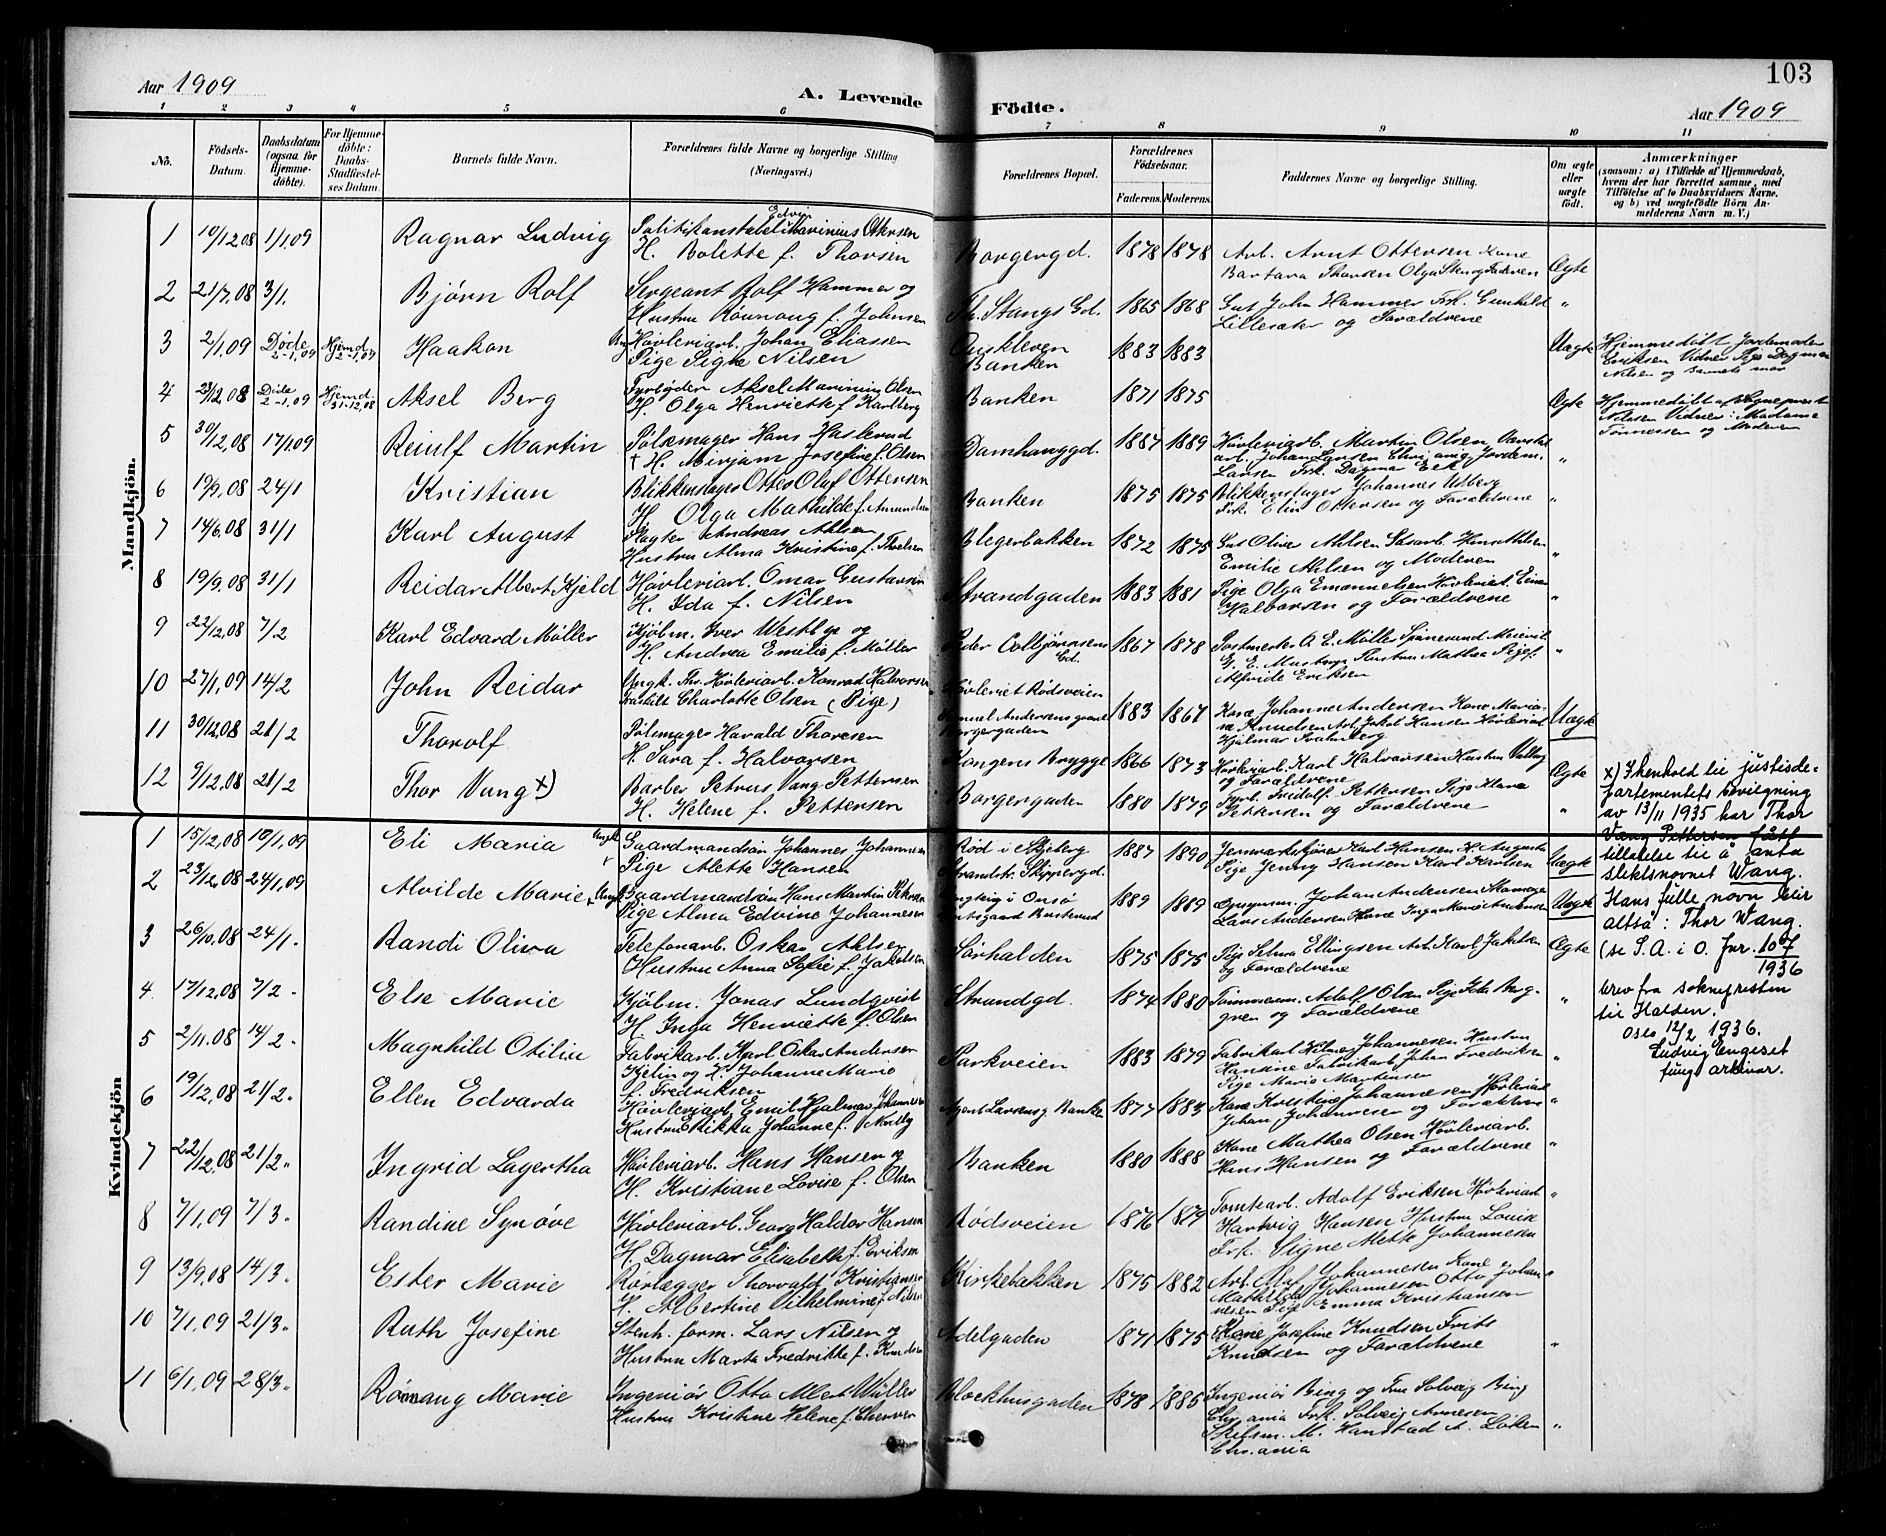 103
Aar 1909
A. Levende Födte.
Aar 1909
1 2 3 4 5 6 7 8 9 10 11
No.
Födsels-Datum.
Daabsdatum (ogsaa for Hjemme-döbte).
For Hjemme-döbte: Daabs-Stadfæstel-ses Datum.
Barnets fulde Navn.
Forældrenes fulde Navne og borgerlige Stilling (Næringsvei.)
Forældrenes Bopæl.
Forældrenes Födselsaar.
Faderens. Moderens.
Faddernes Navne og borgerlige Stilling.
Om ægte eller uægte födt.
Anmærkninger
(saasom: a) i Tilfælde af Hjemmedaab, hvem der har forrettet samme, med Tilföielse af to Daabsvidners Navne. og b) ved uægtefödte Börn An-melderens Navn m. V.)
Mandkjön.
1 10/12 08 1/1.09 Ragnar Ludvig
Politikonstabel Edvin Marinius Ottersen
H. Bolette f. Thorsen
Borgergd. 1878 1878
Arb. Arnt Ottersen Kone
Barbara Thorsen Olga
Ægte
2 21/7,08 3/1. Bjørn Rolf
Sergeant Rolf Hammer og
Hustru Rønnaug f. Johnsen
Th. Stangs Gd. 1865 1868
Gut John Hammer Frk. Gunhild
Lillesæter og Forældrene
"
3 2/1.09 Døde 2-1,09 Hjemd. 2-1,09 Haakon
Høvleriarb. Johan Eliassen
Pige Signe Nilsen
Banken 1883 1883
Uægte
Hjemmedøbt Jordemoder
Eriksen Vidner Pige Dagmar
Nilsen og barnets mor
4 22/12,08 Døde 2-1,09 Hjemd. 31-12,08 Aksel Berg
Fyrbøder Aksel Marinius Olsen
H. Olga Henriette f. Karlberg
Banken 1871 1875
Ægte
Hjemmedøbt af Sognepræst
Nilsen Vidner: Madame
Tønnessen og Moderen
5 30/12,08 17/1.09 Reiulf Martin
Pølsemager Hans Haslerud
+ H. Mirjam Josefine f. Olsen
Damhauggd. 1887 1889
Høvleriarb. Martin Olsen
arb. Johan Larsen Chr.ania, Jordem.
Larsen Frk. Dagmar Eek
"
6 19/9,08 24/1 Kristian
Blikkenslager Otto Oluf Ottersen
H. Olga Mathilde f. Amundsen
Banken 1875 1875
Blikkenslager Johannes Utberg
Frk. Elin Ottersen og Forældrene
"
7 14/6,08 31/1 Karl August
Slagter Andreas Ahlsen
Hustru Alma Kristine f. Thoelsen
Blegerbakken 1872 1875
Gut Oliver Ahlsen
Emilie Ahlsen og Moderen
"
8 19/9,08 31/1 Reidar Albert Kjeld
Høvleriarb. Omar Gustavsen
H. Ida f. Nilsen
Strandgaden 1883 1881
Pige Olga Emanuelsen Høvleriarb. Einar
Halvorsen og Forældrene
"
9 22/12,08 7/2 Karl Edvard Møller
Kjøbm. Iver Westbye og
H. Andrea Emilie f. Møller
Peder Colbjørnsens Gd. 1867 1878
Postmester A. E. Møller Spinnesund
Hustru Mathea
Alfride Eriksen
"
10 27/1,09 14/2 John Reidar
Ungk. Høvleriarb. Konrad Halvorsen
Fraskilt Charlotte Olsen (Pige)
Høvleriet Rødsveien
Borgergaden 1883 1867
Kone Johanne Andersen Kone
Knudsen Arb. Jakob Hansen
Hjalmar
Uægte
11 30/12,08 21/2 Thorolf
Pølsemager Harald Thoresen
H. Sara f. Halvorsen
Kongens Brygge 1866 1873
Høvleriarb. Karl Halvorsen Hustru
og Forældrene
Ægte
12 9/12,08 21/2 Thor Vang x)
Barber Petrus Vang Pettersen
H. Helene f. Pettersen
Borgergaden 1880 1879
Fyrb. Fridolf Pettersen Pige Klara
Pettersen og Forældrene
"
x) I henhold til justisde-
partementets bevilgning
av 13/11 1935 har Thor
Vang Pettersen fått
tillatelse til å anta
slektsnavnet Wang.
Hans fulle navn blir
altså: Thor Wang.
(se S.A. i O. Jnr. 107/1936
brev fra soknepresten
til Halden.
Oslo 12/2 1936.
Ludvig Engeset
fung. arkivar.
Kvindekjön
1 15/12,08 19/1,09 Eli Maria
Ungk. Gaardmandssøn Johannes Johannesen
Pige Alette Hansen
Rød i Skjeberg
Skippergd. 1887 1890
Jernværksarbeider Karl Hansen
Pige Jenny Hansen Karl Karlsen
Uægte
2 23/12,08 24/1,09 Alvilde Marie
Ungk. Gaardmandssøn Hans Martin Pettersen
Pige Alma Edvine Johannesen
i Onsø 1889 1889
Johan Andersen
Lars Andersen Kone Inga Marie Andersen
Uægte
3 26/10,08 24/1. Randi Oliva
Telefonarb. Oskar Ahlsen
Hustru Anna Sofie f. Jakobsen
Sørhalden 1875 1875
Pige Selma Ellingsen Arb. Karl Jakobsen
og Forældrene
Ægte
4 17/12,08 7/2. Else Marie
Kjøbm. Jonas Lundqvist
H. Inga Henriette f. Olsen
Strandgd. 1874 1880
Tømmerm. Adolf Olsen Pige Ida Berg-
gren og Forældrene
"
5 2/11.08 14/2. Magnhild Otilia
Fabrikarb. Karl Oskar Andersen
Kjelin og H. Johanne Marie
f. Fredriksen
Parkveien 1883 1879
Fabrikarb. Hilmar Johannesen Hustru
Hansine Fabrikarb. Johan Fredriksen
Pige Marie Martinsen
"
6 19/12,08 21/2. Ellen Edvarda
Høvleriarb. Emil Hjalmar Johannesen
Hustru Rikka Johanne f. Nordby
Agent Larsens g. Banken 1877 1883
Kone Kristine Johannesen Høvleriarb.
Johan Johannesen og Forældrene
"
7 22/12,08 21/2. Ingrid Lagertha
Høvleriarb. Hans Hansen og
H. Kristiane Lovise f. Olsen
Banken 1880 1888
Kone Mathea Olsen Høvleriarb.
Hans Hansen og Forældrene
"
8 7/1,09 7/3. Randine Synøve
Høvleriarb. Georg Haldor Hansen
H. Dagmar Elisabeth f. Eriksen
Rødsveien 1876 1879
Tomtearb. Adolf Eriksen Høvleriarb.
Hartvig Hansen Hustru Louise
Frk. Signe Alette Johannesen
"
9 13/9,08 14/3. Ester Marie
Rørlægger Thorvald Kristiansen
H. Albertine Vilhelmine f. Nilsen
Kirkebakken 1875 1882
Arb. Olaf Johannesen Kone
Mathilde Johannesen Otto Johan-
nesen Pige Emma Kristiansen
"
10 7/1,09 21/3. Ruth Josefine
Stenh. form. Lars Nilsen og
Hustru Marta Fredrikke f. Knudsen
Adelgaden 1871 1875
Kone Josefine Knudsen Frits
Knudsen og Forældrene
"
11 6/1,09 28/3. Rønnaug Marie
Ingeniør Otto Albert Müller
Hustru Kristine Helene f.
Blockhusgaden 1878 1885
Ingeniør Bing og Frue Solveig Bing
Chr.ania Frk. Solveig Arnesen
Skibsm. M. Hanstad A. Løken
Chr.ania
"